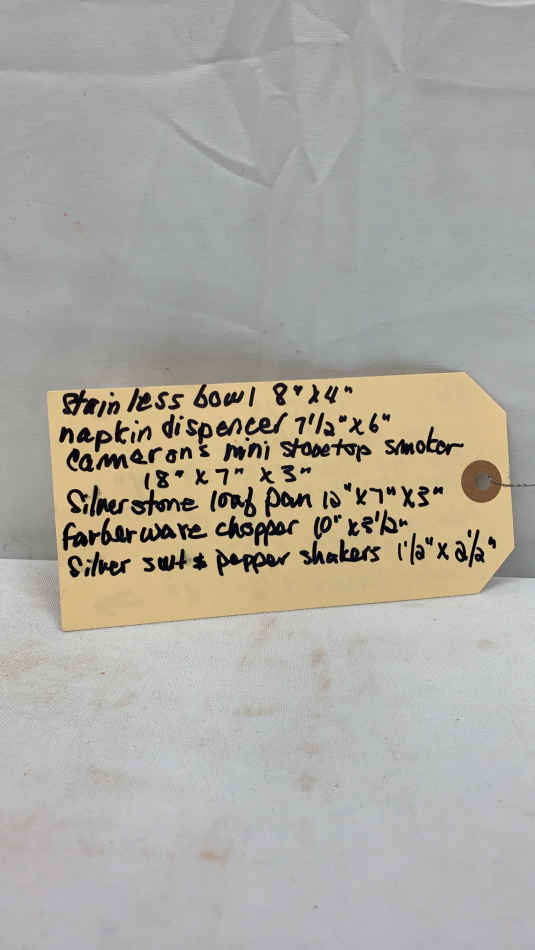 Stainless bowl 8" x 4"
napkin dispencer 7 1/2" x 6"
Camerons mini stovetop smoker
18" x 7" x 3"
Silverstone loaf pan 12" x 7" x 3"
farberware chopper 10" x 3 1/2"
Silver salt & pepper shakers 1 1/2" x 2 1/2"